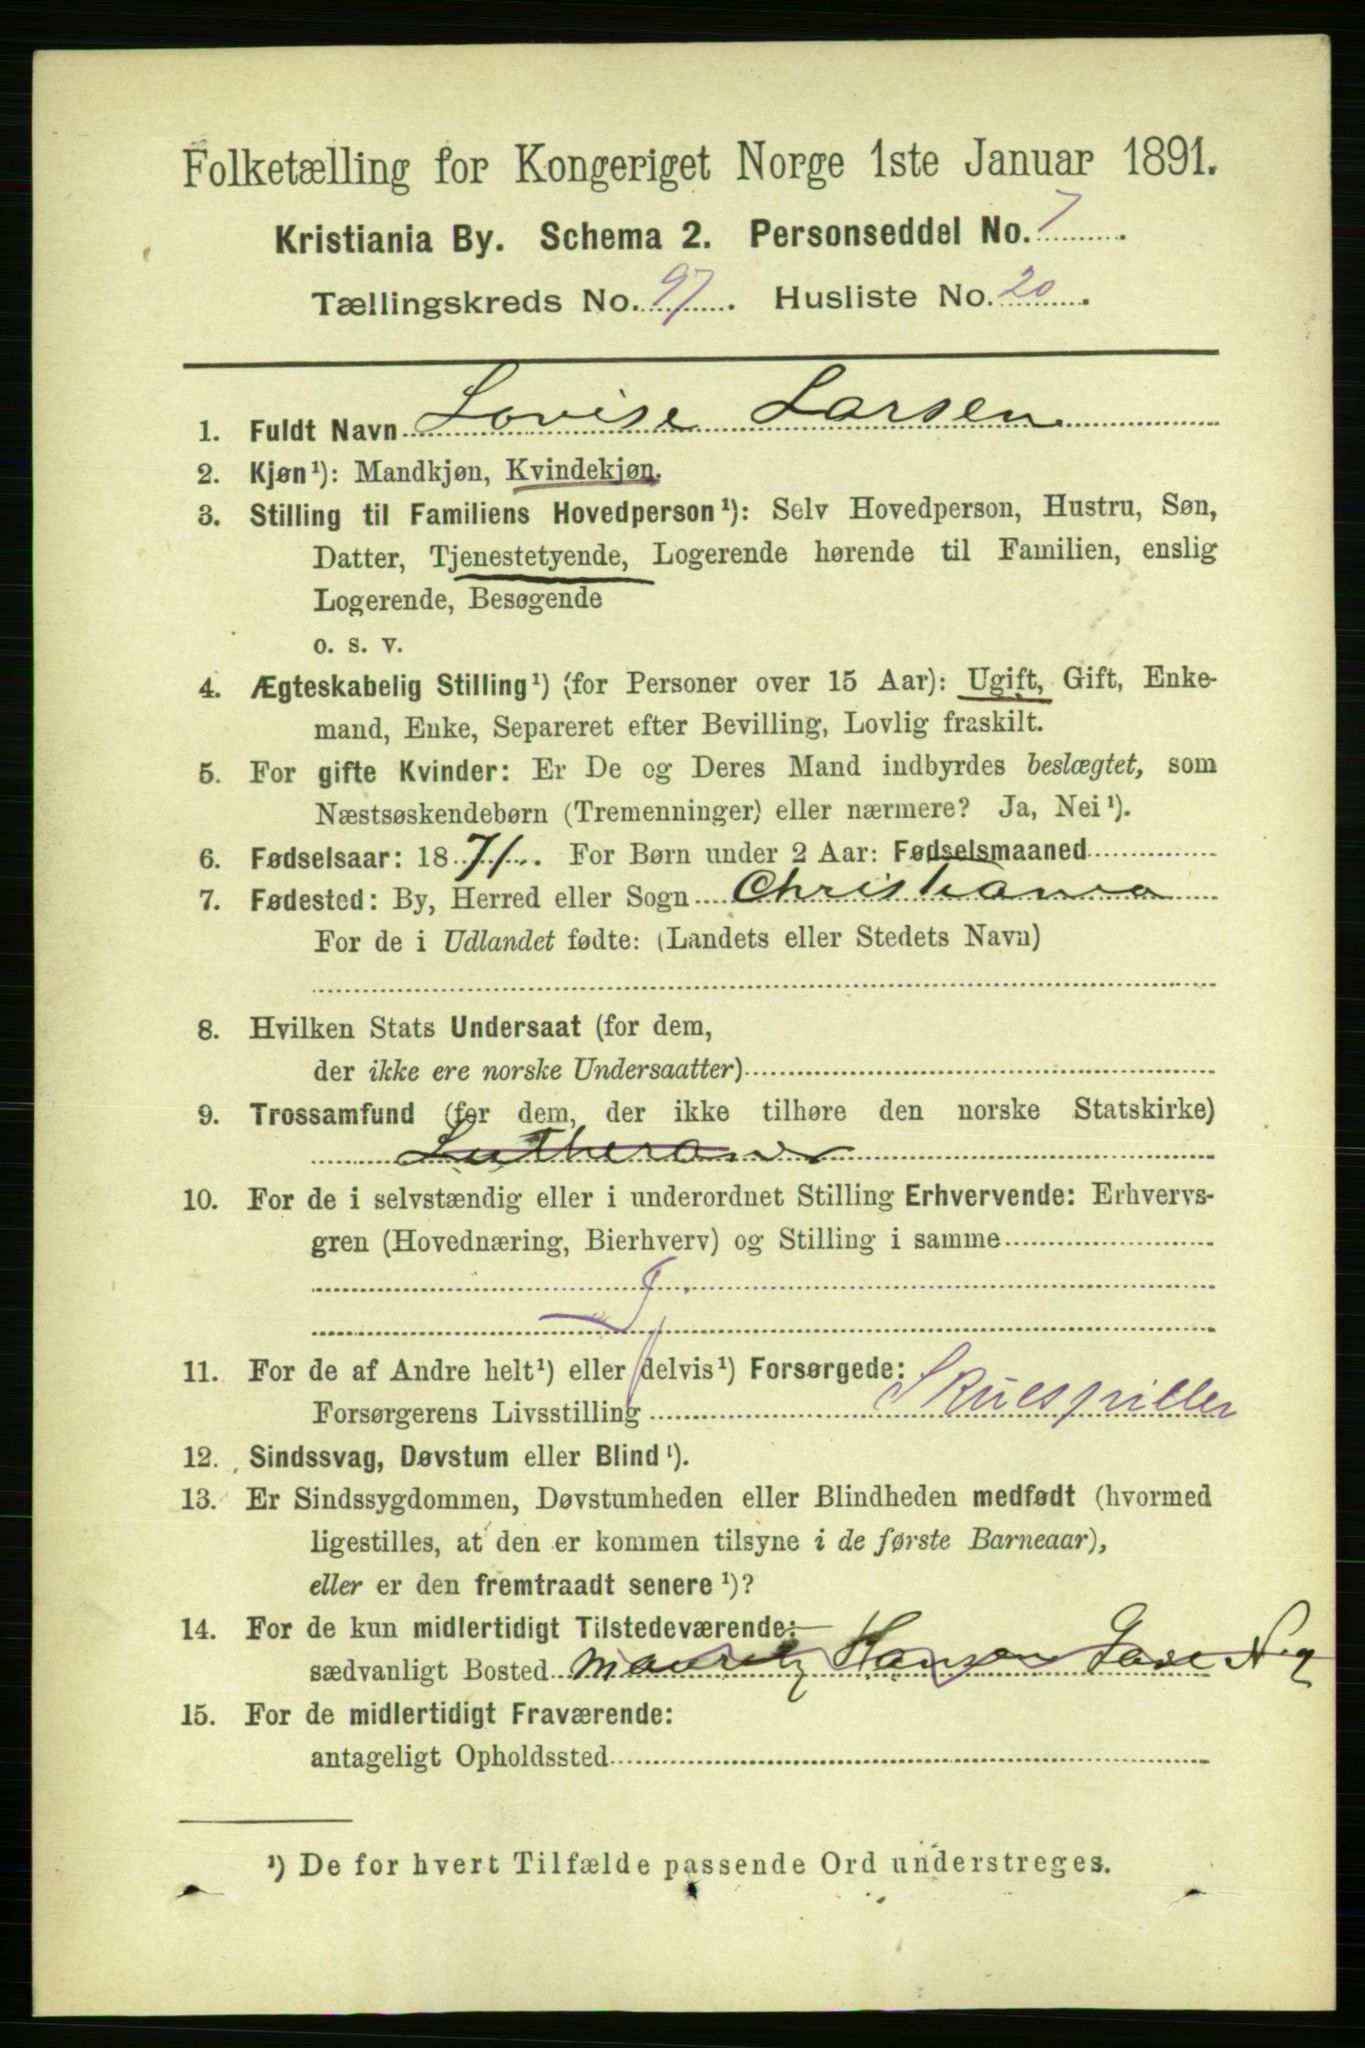 Folketælling for Kongeriget Norge 1ste Januar 1891.
Kristiania By. Schema 2. Personseddel No. 7
Tællingskreds No. 97. Husliste No. 20.
1. Fuldt Navn Lovise Larsen
2. Kjøn¹): Mandkjøn, Kvindekjøn.
3. Stilling til Familiens Hovedperson¹): Selv Hovedperson, Hustru, Søn,
Datter, Tjenestetyende, Logerende hørende til Familien, enslig
Logerende, Besøgende
o. s. v.
4. Ægteskabelig Stilling¹) (for Personer over 15 Aar): Ugift, Gift, Enke-
mand, Enke, Separeret efter Bevilling, Lovlig fraskilt.
5. For gifte Kvinder: Er De og Deres Mand indbyrdes beslægtet, som
Næstsøskendebørn (Tremenninger) eller nærmere? Ja, Nei¹).
6. Fødselsaar: 1871. For Børn under 2 Aar: Fødselsmaaned
7. Fødested: By, Herred eller Sogn Christiania
For de i Udlandet fødte: (Landets eller Stedets Navn)
8. Hvilken Stats Undersaat (for dem,
der ikke ere norske Undersaatter)
9. Trossamfund (for dem, der ikke tilhøre den norske Statskirke)
Lutheraner
10. For de i selvstændig eller i underordnet Stilling Erhvervende: Erhvervs-
gren (Hovednæring, Bierhverv) og Stilling i samme
11. For de af Andre helt¹) eller delvis¹) Forsørgede:
Forsørgerens Livsstilling Skuespiller
12. Sindssvag, Døvstum eller Blind¹).
13. Er Sindssygdommen, Døvstumheden eller Blindheden medfødt (hvormed
ligestilles, at den er kommen tilsyne i de første Barneaar),
eller er den fremtraadt senere¹)?
14. For de kun midlertidigt Tilstedeværende:
sædvanligt Bosted Mauritz Hansen Gade N. 9
15. For de midlertidigt Fraværende:
antageligt Opholdssted
¹) De for hvert Tilfælde passende Ord understreges.